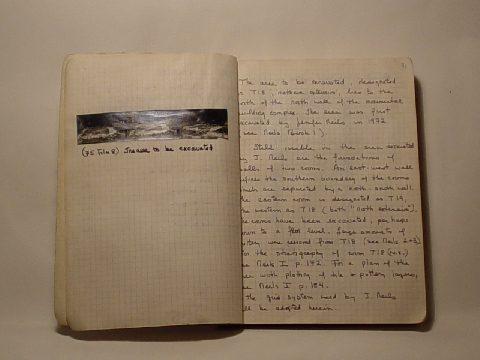 (75 Film 2) Trench to be excavated
1.
The area to be excavated, designated
as T18, northern extension, lies to the
north of the north wall of the monumental
building complex. The area was first
excavated by Jenifer Neils in 1972
(see Neils Book I).
Still visible in the area excavated
by J. Neils are the foundations of
walls of two rooms. An east-west wall
defines the southern boundary of the rooms
which are separated by a north-south wall.
The eastern room is designated as T19,
the western as T18 (both "north extension").
The rooms have been excavated, perhaps
down to a floor level. Large amounts of
pottery were removed from T18 (see Neils
For the stratigraphy of room T18
see Neils I p. 182. For a plan of the
area with plotting of tile + pottery
see Neils I, p. 184.
The grid system used by J. Neils
will be adopted herein.